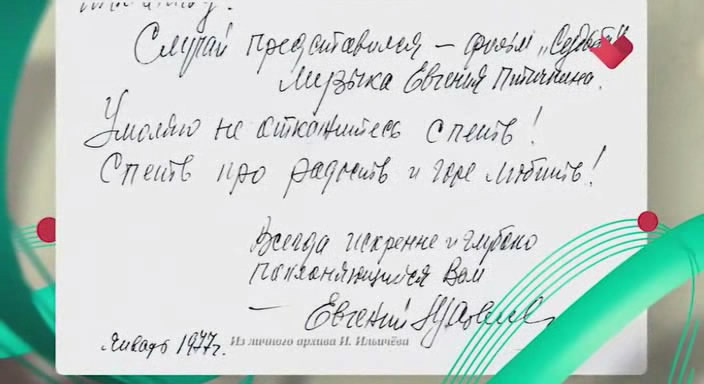 Случай представился — фильм „Судьба"
Музыка Евгения Птичкина.
Умоляю не откажитесь спеть!
Спеть про радость и горе любить!
Всегда искренне и глубоко
поклоняющийся Вам
— Евгений
Январь 1977 г.
Из личного архива И. Ильичёва